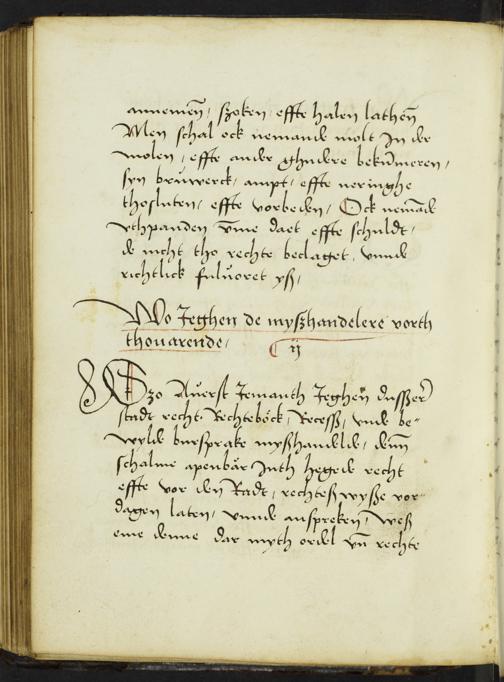 annemen̄, szoken, effte halen lathen̄
Men schal ock nemande molt In der
molen, effte ander ghudere bekūmeren,
syn bruwerck, ampt, effte neringhe
thosluten, effte vorbeden, Ock nemāde
vthpanden vm̄e daet effte schuldt,
de nicht tho rechte beclaget, vnnde
richtlick fulůoret ysz,
Wo Jeghen de myszhandelere vorth
thouarende,
ij
Szo Auerst Jemanth Jeghen dusszer
stadt recht, Rechteböck, Recessz, vnde be-
wylde bursprake myszhandelde, denn̄
schalme apenbár Inth hegede recht
effte vor den Radt, rechtesz wysze vor-
dagen laten, vnnde anspreken, wesz
eme denne dar myth ordel vn̄ rechte